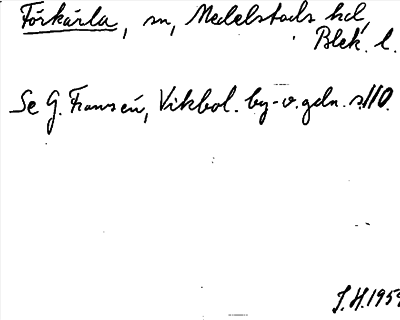 Förkärla, sn, Medelstads hd,
Blek. l.
Se G. Franzén, Vikbol. by- o. gdn. s. 110.
J. H. 1959